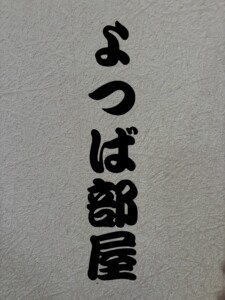 よつば部屋